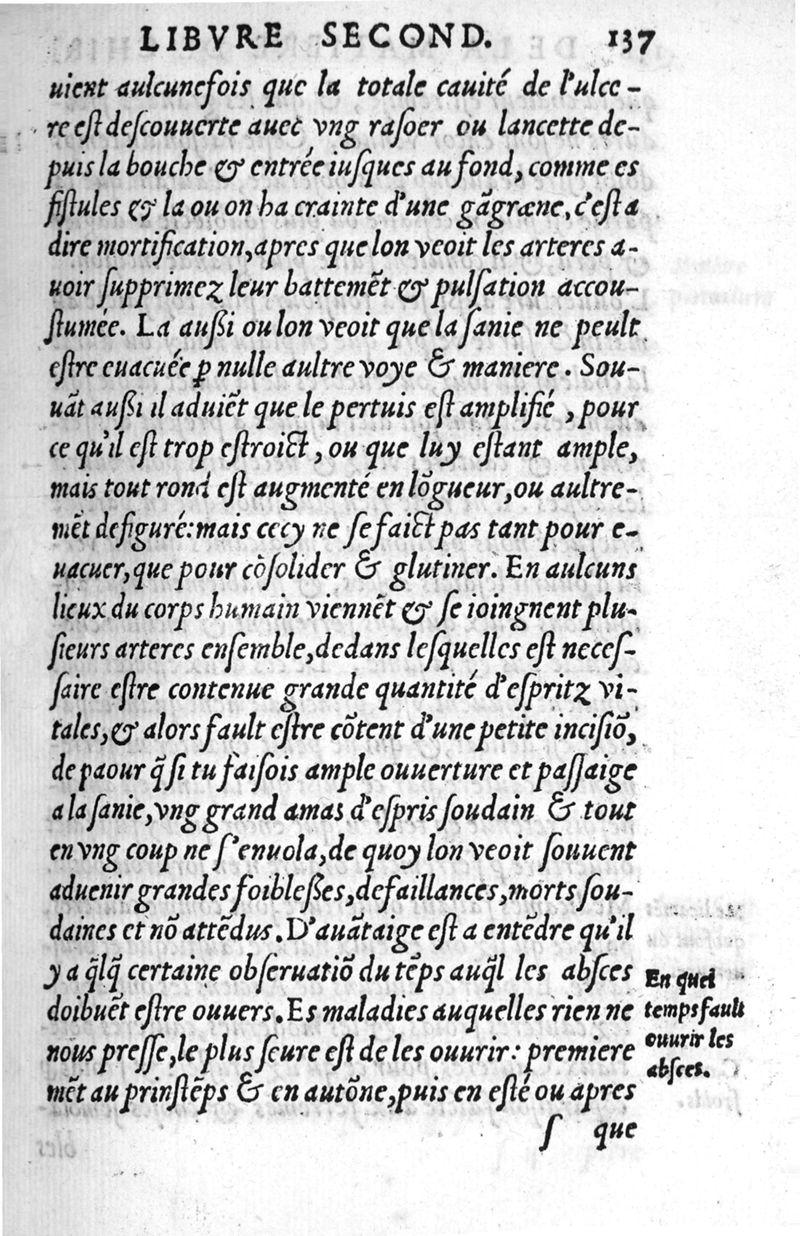 LIBVRE SECOND. 137
uient aulcunefois que la totale cauité de l'ulce-
re eſt deſcouuerte auec vng raſoer ou lancette de-
puis la bouche & entrée iuſques au fond, comme es
fiſtules & la ou on ha crainte d'une gãgræne, c'eſt a
dire mortification, apres que lon veoit les arteres a-
uoir ſupprimez leur battemẽt & pulſation accou-
ſtumée. La auſſi ou lon veoit que la ſanie ne peult
eſtre euacuée ꝑ nulle aultre voye & maniere. Sou-
uãt auſſi il aduiẽt que le pertuis eſt amplifié, pour
ce qu'il eſt trop eſtroict, ou que luy eſtant ample,
mais tout rond eſt augmenté en lõgueur, ou aultre-
mẽt defiguré: mais cecy ne ſe faict pas tant pour e-
uacuer, que pour cõſolider & glutiner. En aulcuns
lieux du corps humain viennẽt & ſe ioingnent plu-
ſieurs arteres enſemble, dedans leſquelles eſt neceſ-
ſaire eſtre contenue grande quantité d'eſpritz vi-
tales, & alors fault eſtre cõtent d'une petite inciſiõ,
de paour q̃ ſi tu faiſois ample ouuerture et paſſaige
a la ſanie, vng grand amas d'eſpris ſoudain & tout
en vng coup ne ſ'enuola, de quoy lon veoit ſouuent
aduenir grandes foibleſſes, defaillances, morts ſou-
daines et nõ attẽdus. D'auãtaige eſt a entẽdre qu'il
y a q̃lq̃ certaine obſeruatiõ du tẽps auq̃l les abſces
doibuẽt eſtre ouuers. Es maladies auquelles rien ne
nous preſſe, le plus ſeure eſt de les ouurir: premiere
mẽt au prinſtẽps & en autõne, puis en eſté ou apres
ſ que
En quel
temps fault
ouurir les
abſces.